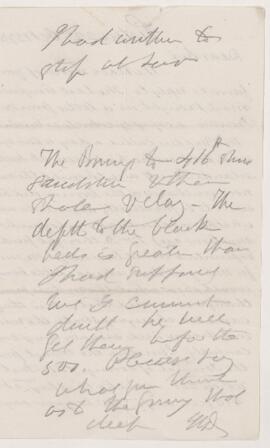 I had written to
stop at
The Boring to 416 ft thro
sandstone & then
shale & clay - The
depth to the black
beds is greater than
I had supposed
but I
drill he will
get them before the
500. Please say
what you think
as to the going
deep